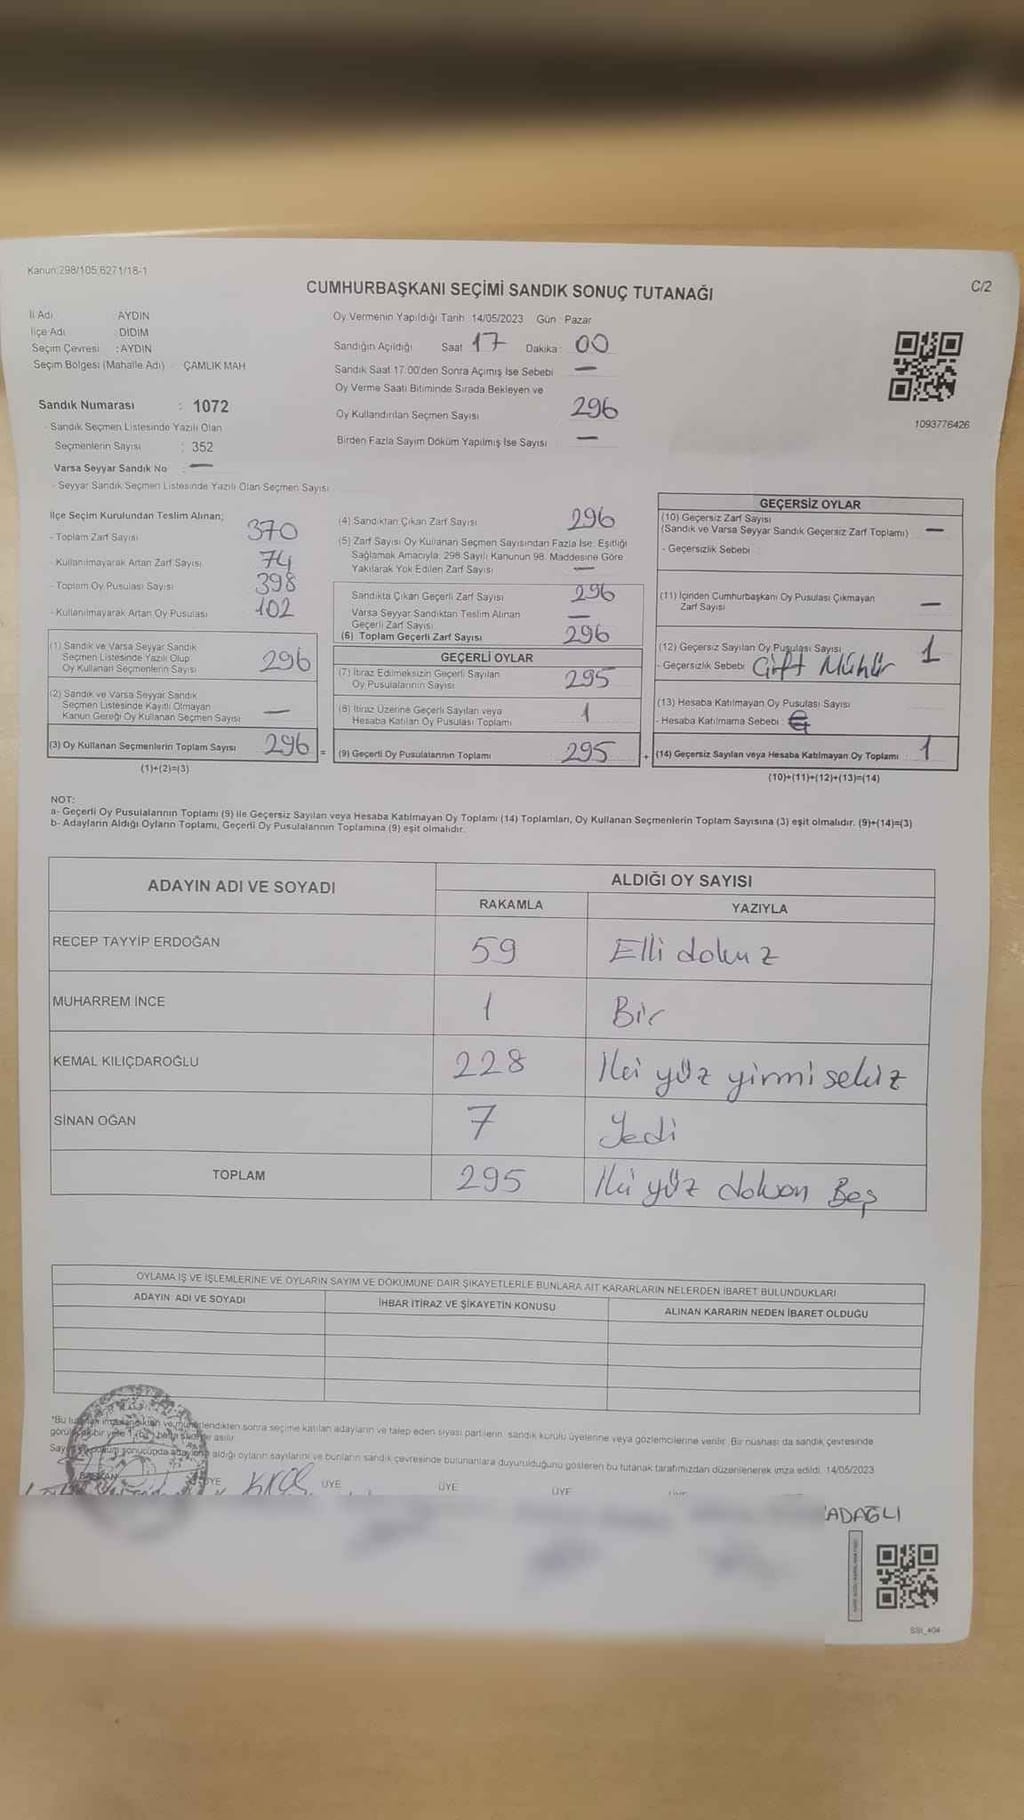 Kanun:298/105;6271/18-1
C/2
CUMHURBAŞKANI SEÇİMİ SANDIK SONUÇ TUTANAĞI
İl Adı AYDIN
İlçe Adı : DİDİM
Seçim Çevresi : AYDIN
Seçim Bölgesi (Mahalle Adı) : ÇAMLIK MAH
Sandık Numarası : 1072
- Sandık Seçmen Listesinde Yazılı Olan
Seçmenlerin Sayısı : 352
Varsa Seyyar Sandık No : —
- Seyyar Sandık Seçmen Listesinde Yazılı Olan Seçmen Sayısı
Oy Vermenin Yapıldığı Tarih 14/05/2023 Gün : Pazar
Sandığın Açıldığı Saat 17 Dakika : 00
Sandık Saat 17:00'den Sonra Açımış İse Sebebi —
Oy Verme Saati Bitiminde Sırada Bekleyen ve
Oy Kullandırılan Seçmen Sayısı 296
Birden Fazla Sayım Döküm Yapılmış İse Sayısı —
1093776426
İlçe Seçim Kurulundan Teslim Alınan;
- Toplam Zarf Sayısı 370
- Kullanılmayarak Artan Zarf Sayısı 74
- Toplam Oy Pusulası Sayısı 398
- Kullanılmayarak Artan Oy Pusulası 102
(1) Sandık ve Varsa Seyyar Sandık
Seçmen Listesinde Yazılı Olup
Oy Kullanan Seçmenlerin Sayısı 296
(2) Sandık ve Varsa Seyyar Sandık
Seçmen Listesinde Kayıtlı Olmayan
Kanun Gereği Oy Kullanan Seçmen Sayısı —
(3) Oy Kullanan Seçmenlerin Toplam Sayısı 296 =
(1)+(2)=(3)
(4) Sandıktan Çıkan Zarf Sayısı 296
(5) Zarf Sayısı Oy Kullanan Seçmen Sayısından Fazla İse, Eşitliği
Sağlamak Amacıyla, 298 Sayılı Kanunun 98. Maddesine Göre
Yakılarak Yok Edilen Zarf Sayısı —
Sandıkta Çıkan Geçerli Zarf Sayısı 296
Varsa Seyyar Sandıktan Teslim Alınan
Geçerli Zarf Sayısı —
(6) Toplam Geçerli Zarf Sayısı 296
GEÇERLİ OYLAR
(7) İtiraz Edilmeksizin Geçerli Sayılan
Oy Pusulalarının Sayısı 295
(8) İtiraz Üzerine Geçerli Sayılan veya
Hesaba Katılan Oy Pusulası Toplamı 1
(9) Geçerli Oy Pusulalarının Toplamı 295 +
GEÇERSİZ OYLAR
(10) Geçersiz Zarf Sayısı
(Sandık ve Varsa Seyyar Sandık Geçersiz Zarf Toplamı) —
- Geçersizlik Sebebi
(11) İçinden Cumhurbaşkanı Oy Pusulası Çıkmayan
Zarf Sayısı —
(12) Geçersiz Sayılan Oy Pusulası Sayısı 1
- Geçersizlik Sebebi Çift Mühür
(13) Hesaba Katılmayan Oy Pusulası Sayısı
- Hesaba Katılmama Sebebi :
(14) Geçersiz Sayılan veya Hesaba Katılmayan Oy Toplamı 1
(10)+(11)+(12)+(13)=(14)
NOT:
a- Geçerli Oy Pusulalarının Toplamı (9) ile Geçersiz Sayılan veya Hesaba Katılmayan Oy Toplamı (14) Toplamları, Oy Kullanan Seçmenlerin Toplam Sayısına (3) eşit olmalıdır. (9)+(14)=(3)
b- Adayların Aldığı Oyların Toplamı, Geçerli Oy Pusulalarının Toplamına (9) eşit olmalıdır.
ADAYIN ADI VE SOYADI
ALDIĞI OY SAYISI
RAKAMLA YAZIYLA
RECEP TAYYİP ERDOĞAN 59 Elli dokuz
MUHARREM İNCE 1 Bir
KEMAL KILIÇDAROĞLU 228 İki yüz yirmi sekiz
SİNAN OĞAN 7 Yedi
TOPLAM 295 İki yüz doksan Beş
OYLAMA İŞ VE İŞLEMLERİNE VE OYLARIN SAYIM VE DÖKÜMÜNE DAİR ŞİKAYETLERLE BUNLARA AİT KARARLARIN NELERDEN İBARET BULUNDUKLARI
ADAYIN ADI VE SOYADI İHBAR İTİRAZ VE ŞİKAYETİN KONUSU ALINAN KARARIN NEDEN İBARET OLDUĞU
*Bu sonra seçime katılan adayların ve talep eden siyasi partilerin, sandık kurulu üyelerine veya gözlemcilerine verilir. Bir nüshası da sandık çevresinde
bir yere asılır.
aldığı oyların sayılarını ve bunların sandık çevresinde bulunanlara duyurulduğunu gösteren bu tutanak tarafımızdan düzenlenerek imza edildi. 14/05/2023
BAŞKAN ÜYE ÜYE ÜYE ÜYE
ADAĞLI
SSI_404